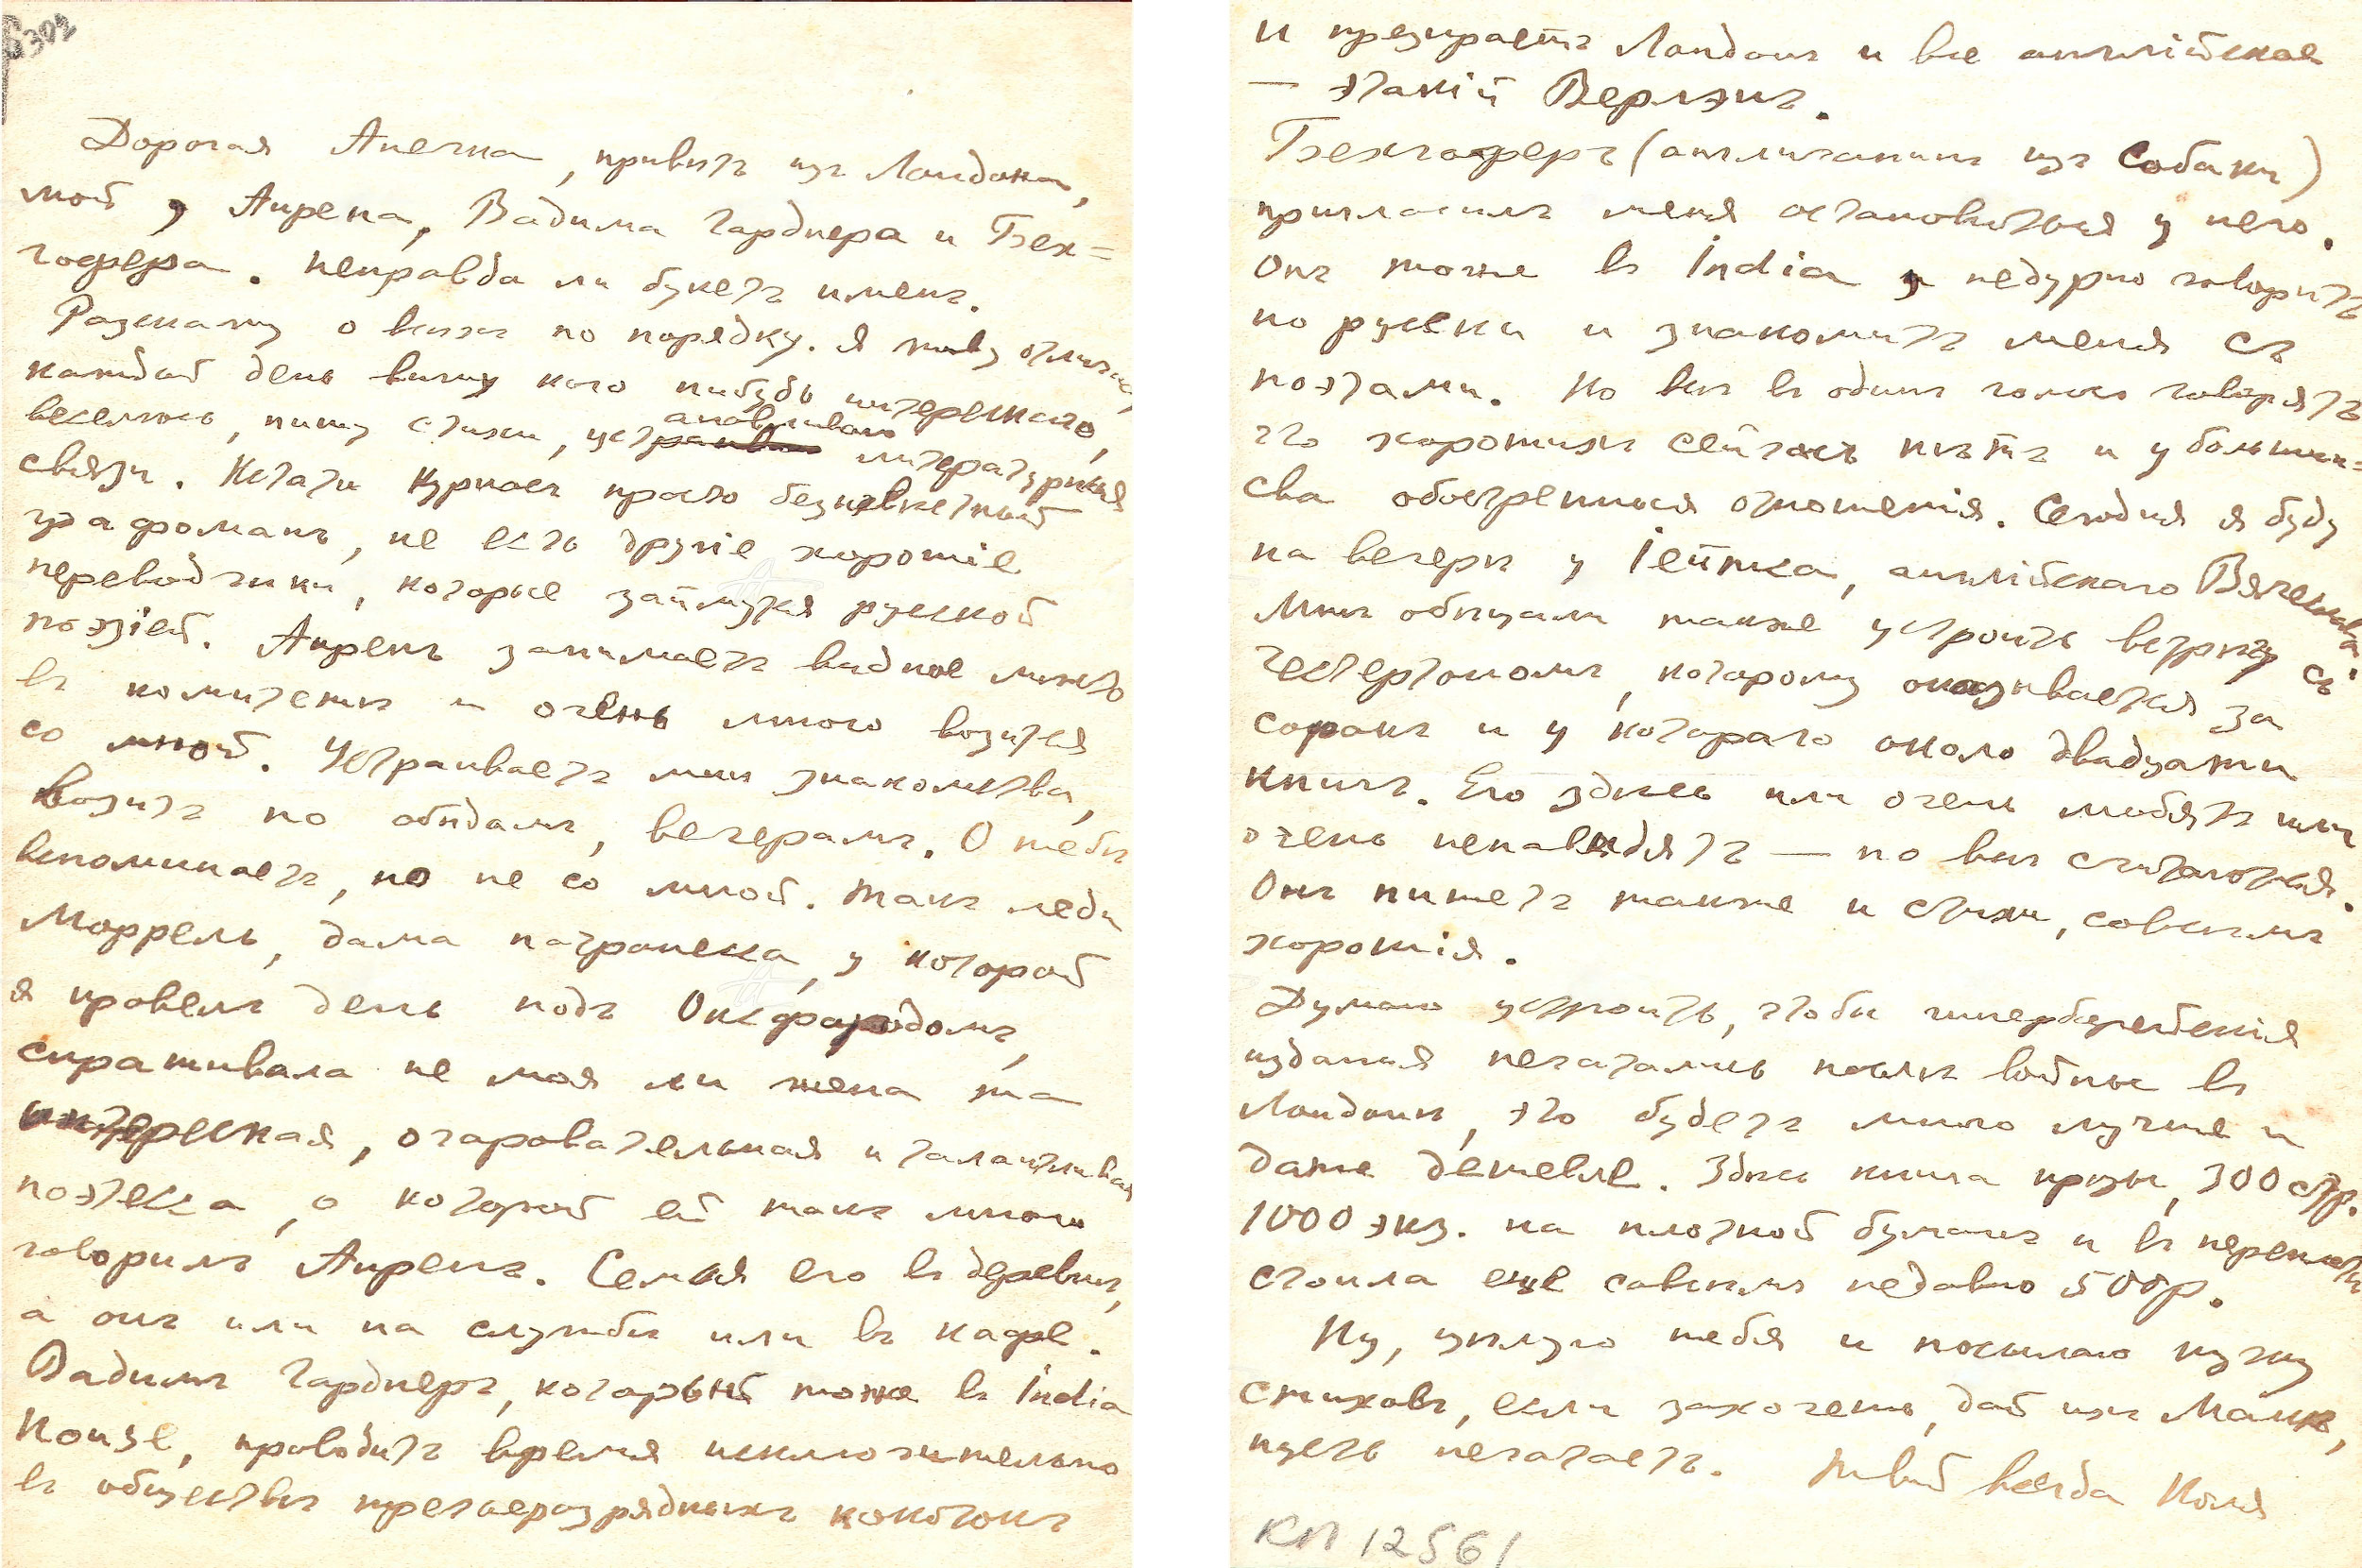 Дорогая Анечка, привѣтъ изъ Лондона,
мой, Анрепа, Вадима Гарднера и Бех=
гофера. Неправда ли букетъ именъ.
Разскажу о всемъ по порядку. Я живу отлично,
каждый день вижу кого нибудь интереснаго,
веселюсь, пишу стихи, устанавливаю литературныя
связи. Кстати Курносъ просто безызвѣстный
графоманъ, не есть другіе хорошіе
переводчики, которые займутся русской
поэзіей. Анрепъ занимаетъ видное мѣсто
въ комитетѣ и очень много возится
со мной. Устраиваетъ мнѣ знакомства,
возитъ по обѣдамъ, вечерамъ. О тебѣ
вспоминаетъ, но не со мной. Такъ леди
Моррель, дама патронесса, у которой
я провелъ день подъ Оксфордомъ,
спрашивала не моя ли жена та
интересная, очаровательная и талантливая
поэтесса, о которой ей такъ много
говорилъ Анрепъ. Семья его въ деревнѣ,
а онъ или на службѣ или въ кафе.
Вадимъ Гарднеръ, который тоже въ India
House, проводитъ время исключительно
въ обществѣ третьеразрядныхъ кокотокъ
и презираетъ Лондонъ и все англійское
— этакій Верлэнъ.
Бехгоферъ (англичанинъ изъ Собаки)
пригласилъ меня остановиться у него.
Онъ тоже въ India, недурно говоритъ
по русски и знакомитъ меня съ
поэтами. Но всѣ въ одинъ голосъ говорятъ
что хорошихъ сейчасъ нѣтъ и у большин=
сва обостренныя отношенія. Сегодня я буду
на вечерѣ у Іейтса, англійскаго Вячеслава.
Мнѣ обѣщали также устроить встрѣчу съ
Честертономъ, которому оказывается за
сорокъ и у котораго около двадцати
книгъ. Его здѣсь или очень любятъ или
очень ненавидятъ — но всѣ считаются.
Онъ пишетъ также и стихи, совсѣмъ
хорошія.
Думаю устроить, чтобы гиперборейскія
изданія печатались послѣ войны въ
Лондонѣ, это будетъ много лучше и
даже дешевле. Здѣсь книга прозы, 300 стр.
1000 экз. на плотной бумагѣ и въ переплетѣ
стоила еще совсѣмъ недавно 500р.
Ну, цѣлую тебя и посылаю кучку
стиховъ, если захочешь, дай ихъ Маковскому,
пусть печатаетъ. Твой всегда Коля
КП 12561